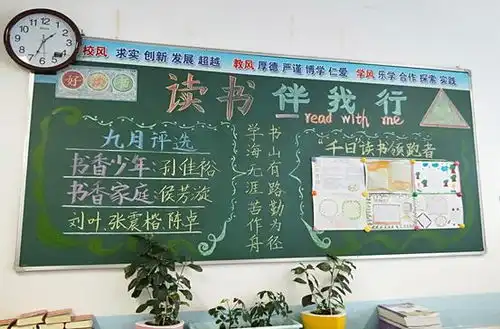 校风 求实 创新 发展 超越 教风 厚德 严谨 博学 仁爱 学风 乐学 合作 探索 实践
好读书
读书伴我行
read with me
九月评选
书香少年:孙佳裕
书香家庭:侯芳漩
刘叶.张震楷.陈卓
书山有路勤为径
学海无涯苦作舟
"千日读书领跑者"